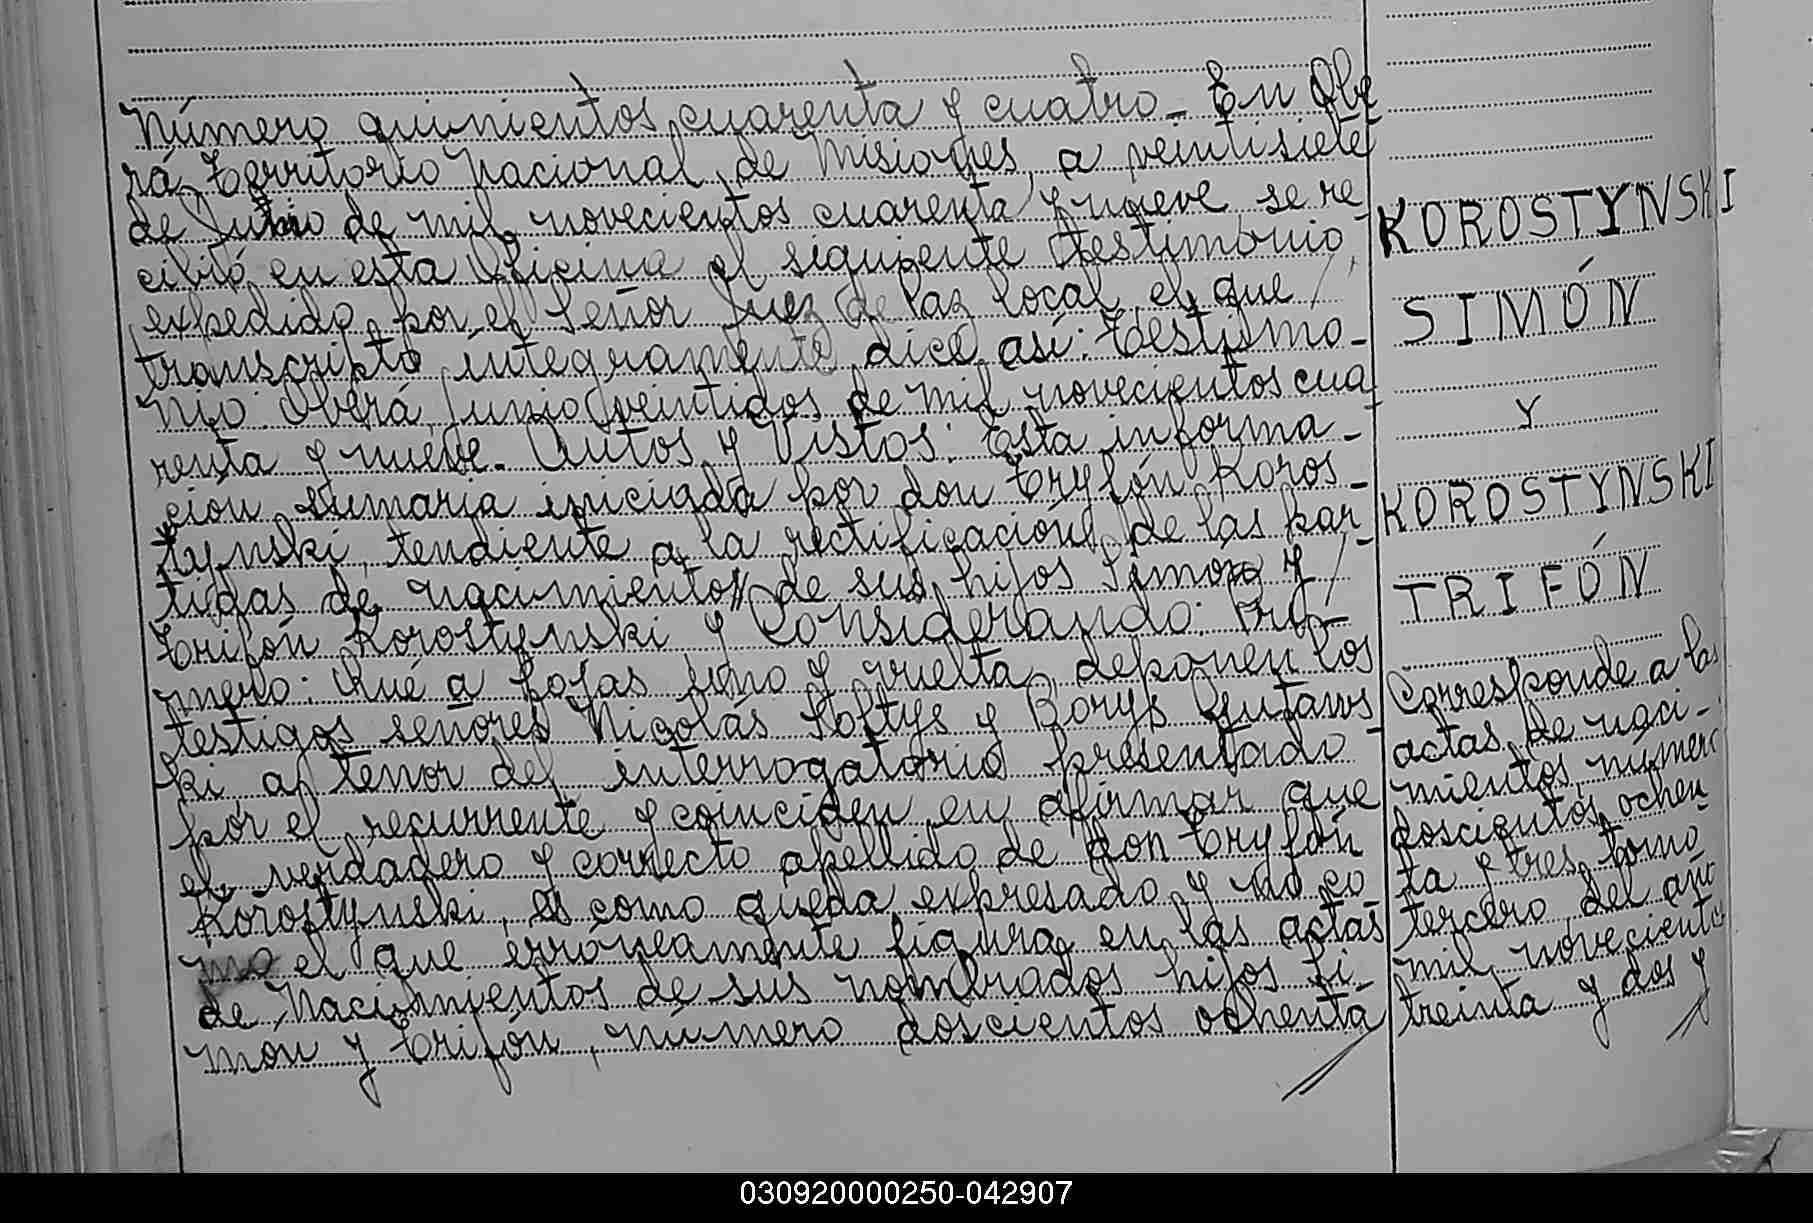 Número quinientos cuarenta y cuatro - En Obe
rá, Territorio Nacional de Misiones, a veintisiete
de Junio de mil novecientos cuarenta y nueve, se re-
cibió en esta Oficina el siguiente testimonio,
expedido por el Señor Juez de Paz local, el que /
transcripto íntegramente dice así: Testimo-
nio: Oberá, Junio veintidos de mil novecientos cua
renta y nueve. Autos y Vistos: Esta informa-
ción sumaria iniciada por don Tryfón Koros-
tynski, tendiente a la rectificación de las par-
tidas de nacimientos de sus hijos Simón y /
Trifón Korostynski y Considerando: Pri-
mero: Qué a fojas uno y vuelta, deponen los
testigos señores Nicolás Soltys y Borys Gutaws
ki al tenor del interrogatorio presentado -
por el recurrente y coinciden en afirmar que
el verdadero y correcto apellido de don Tryfón
Korostynski, es como queda expresado y no co
mo el que erróneamente figura en las actas
de Nacimientos de sus nombrados hijos Si-
món y Trifón, número doscientos ochenta
KOROSTYNSKI
SIMÓN
Y
KOROSTYNSKI
TRIFÓN
Corresponde a las
actas de naci-
mientos, número
doscientos ochen
ta y tres, tomo
tercero del año
mil novecientos
treinta y dos y
030920000250-042907